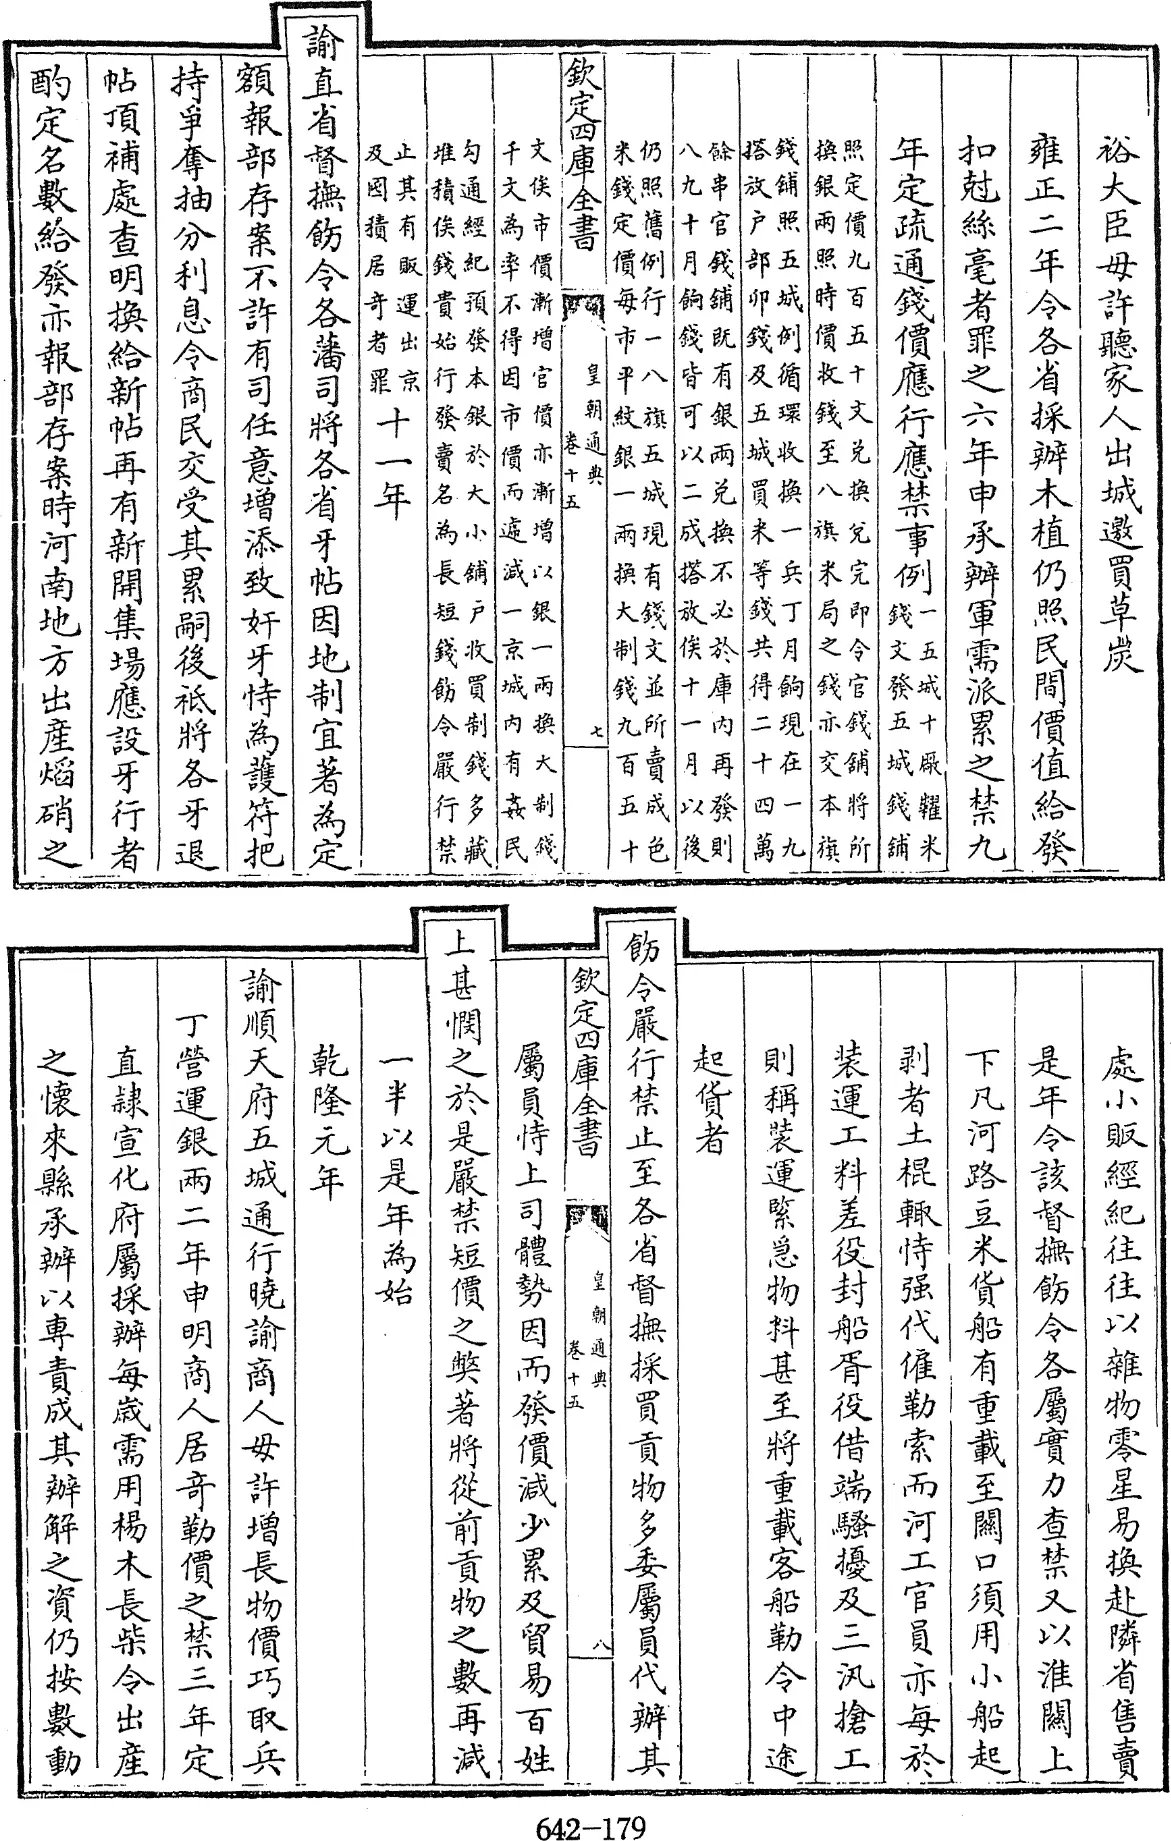 裕大臣毋許聽家人出城邀買草炭
雍正二年令各省採辦木植仍照民間價值給發
扣尅絲毫者罪之六年申承辦軍需派累之禁九
年定疏通錢價應行應禁事例一五城十厰糶米
錢文發五城錢舖
照定價九百五十文兌換兌完即令官錢舖將所
換銀兩照時價收錢至八旗米局之錢亦交本旗
錢舖照五城例循環收換一兵丁月餉現在一九
搭放户部卯錢及五城買米等錢共得二十四萬
餘串官錢舖既有銀兩兌換不必於庫內再發則
八九十月餉錢皆可以二成搭放俟十一月以後
仍照舊例行一八旗五城現有錢文並所賣成色
米錢定價每市平紋銀一兩換大制錢九百五十
欽定四庫全書
皇朝通典
卷十五
七
文俟市價漸增官價亦漸增以銀一兩換大制錢
千文為率不得因市價而遽減一京城內有姦民
勾通經紀預發本銀於大小舖户收買制錢多藏
堆積俟錢貴始行發賣名為長短錢飭令嚴行禁
止其有販運出京
及囤積居奇者罪十一年
諭直省督撫飭令各藩司將各省牙帖因地制宜著為定
額報部存案不許有司任意增添致奸牙恃為護符把
持爭奪抽分利息令商民交受其累嗣後衹將各牙退
帖頂補處查明換給新帖再有新開集場應設牙行者
酌定名數給發亦報部存案時河南地方出產熖硝之
處小販經紀往往以雜物零星易換赴隣省售賣
是年令該督撫飭令各屬實力查禁又以淮關上
下凡河路豆米貨船有重載至關口須用小船起
剥者土棍輒恃强代僱勒索而河工官員亦每於
裝運工料差役封船胥役借端騷擾及三汛搶工
則稱裝運緊急物料甚至將重載客船勒令中途
起貨者
飭令嚴行禁止至各省督撫採買貢物多委屬員代辦其
欽定四庫全書
皇朝通典
卷十五
八
屬員恃上司體勢因而發價減少累及貿易百姓
上甚憫之於是嚴禁短價之獘著將從前貢物之數再減
一半以是年為始
乾隆元年
諭順天府五城通行曉諭商人毋許增長物價巧取兵
丁營運銀兩二年申明商人居奇勒價之禁三年定
直隸宣化府屬採辦每歲需用楊木長柴令出產
之懷來縣承辦以專責成其辦解之資仍按數動
642-179